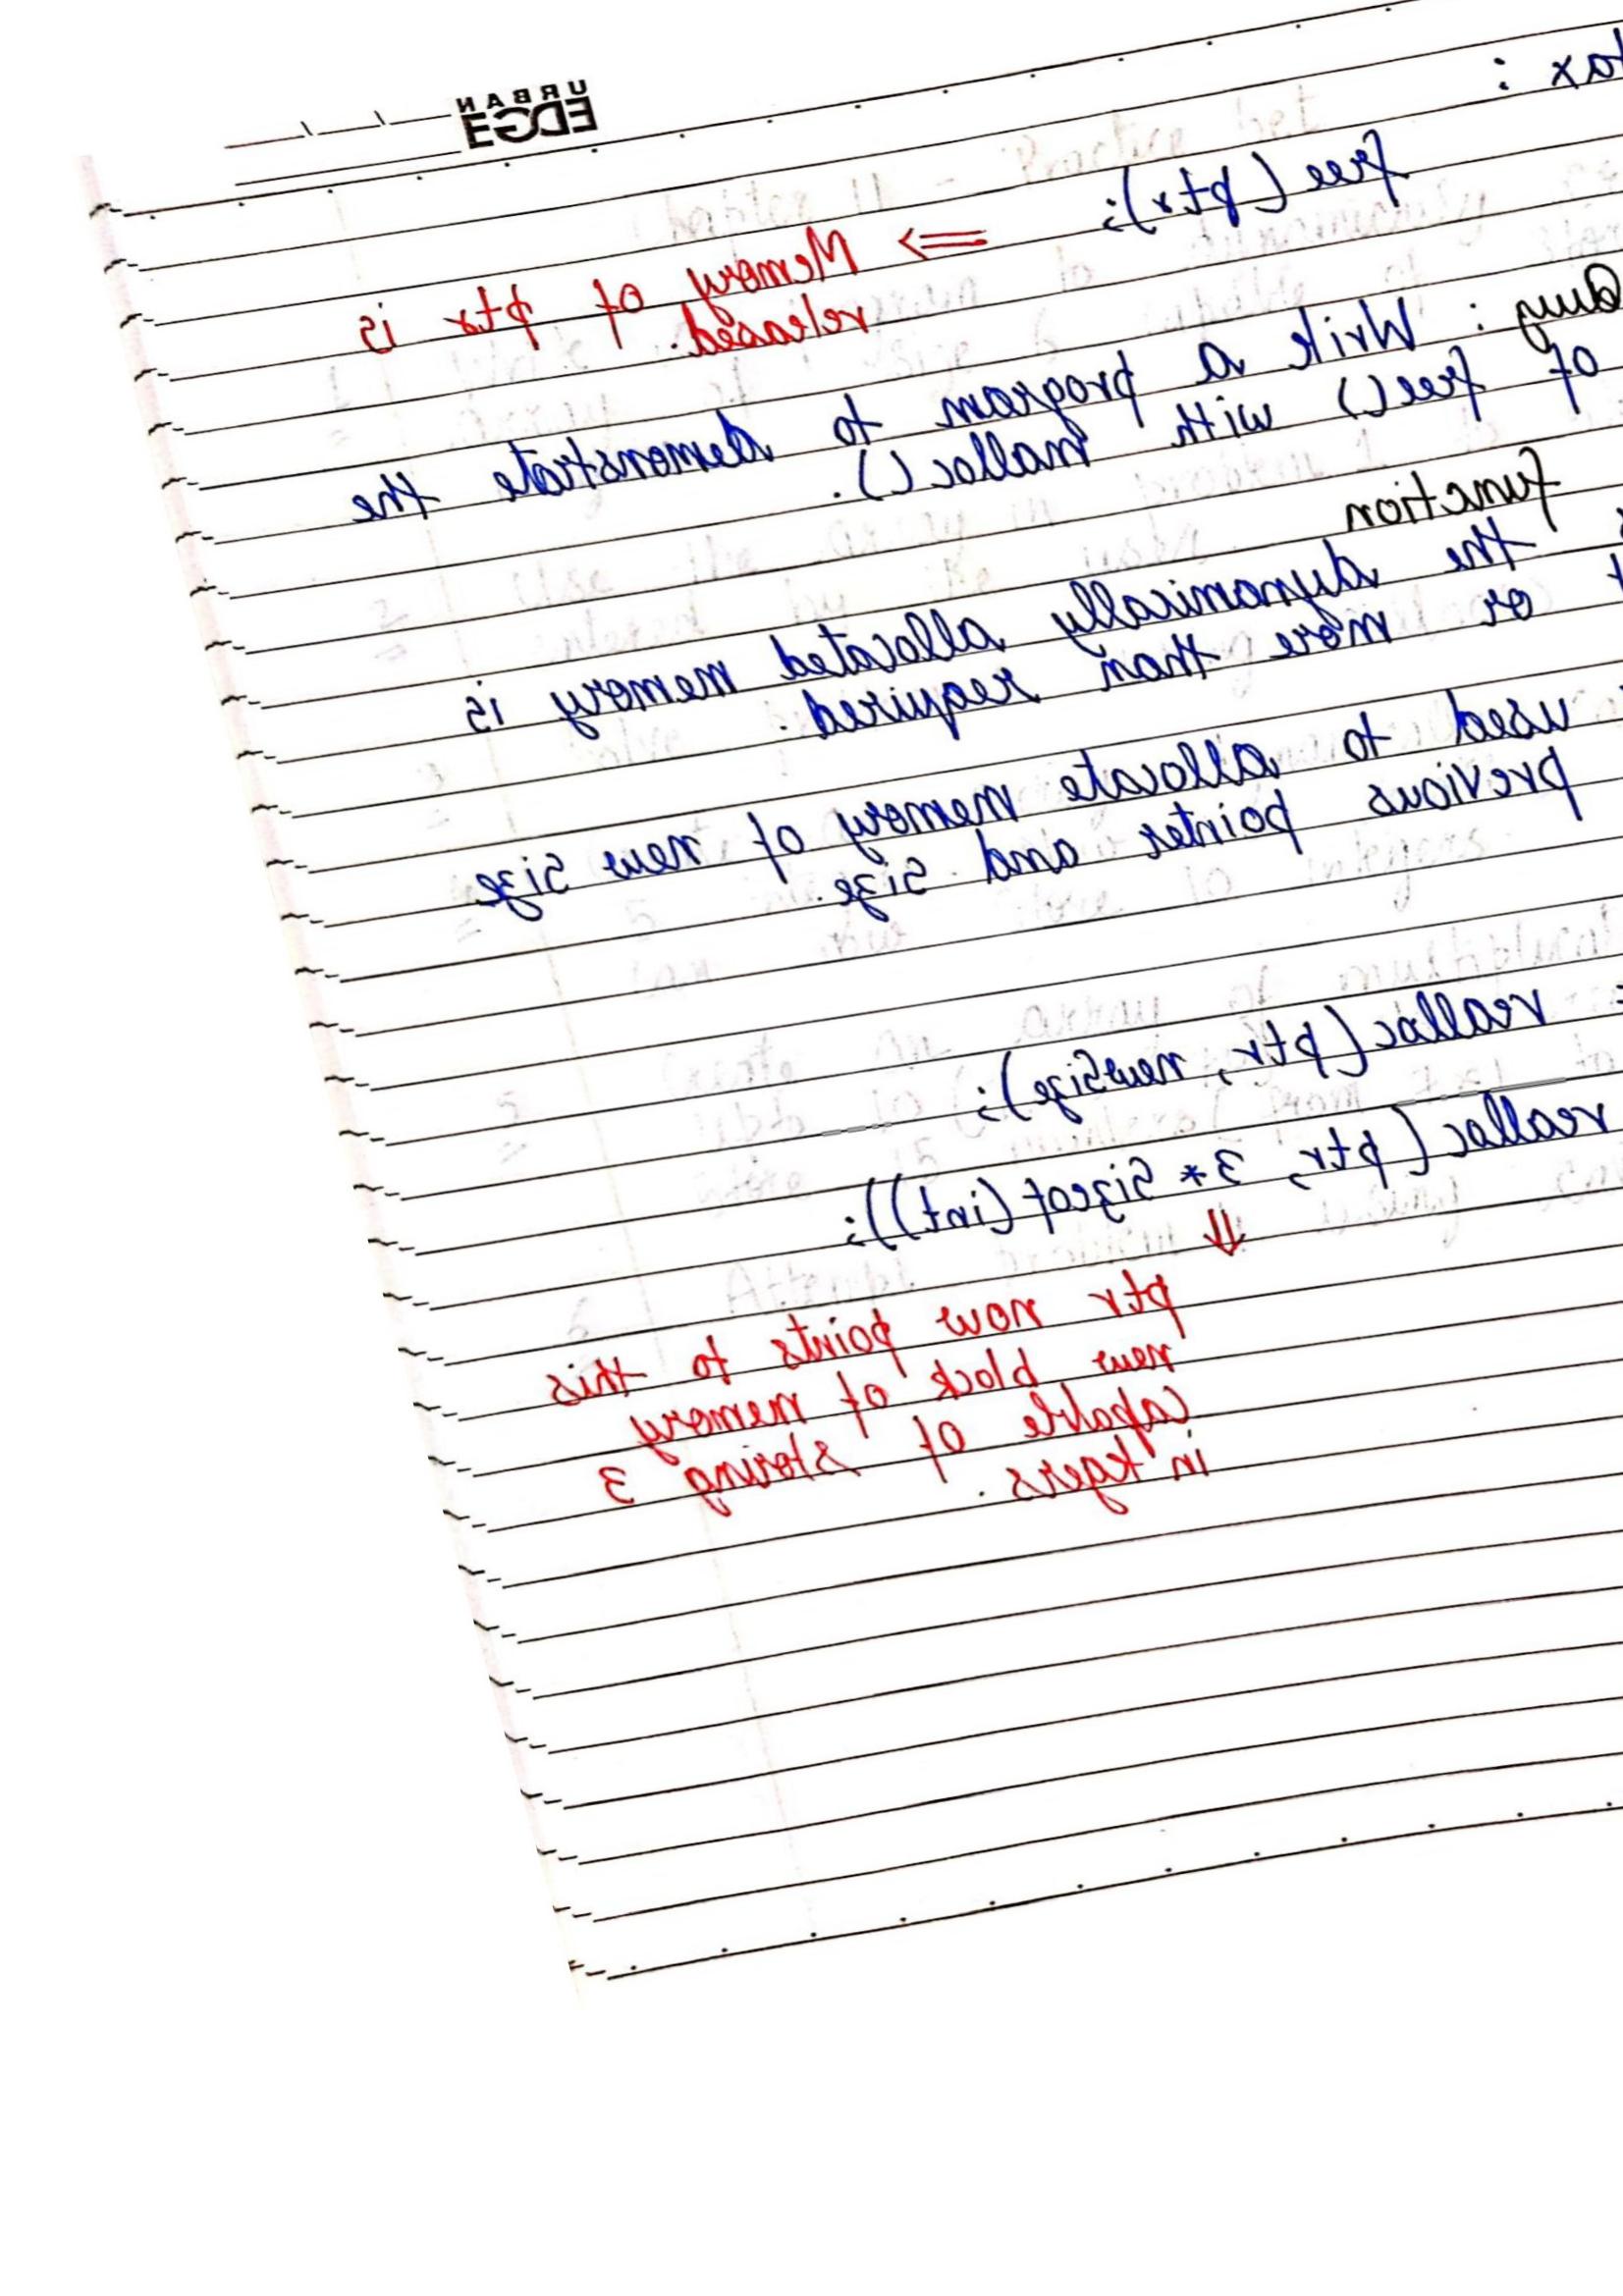 URBAN
EDGE
tax :
free (ptr);
=> Memory of ptr is
released.
Quy : Write a program to demonstrate the
of free() with malloc().
function
the dynamically allocated memory is
or more than required.
used to allocate memory of new size
previous pointer and size.
= realloc (ptr, newSize);
realloc (ptr, 3* Sizeof (int));
⇓
ptr now points to this
new block of memory
capable of storing 3
integers.